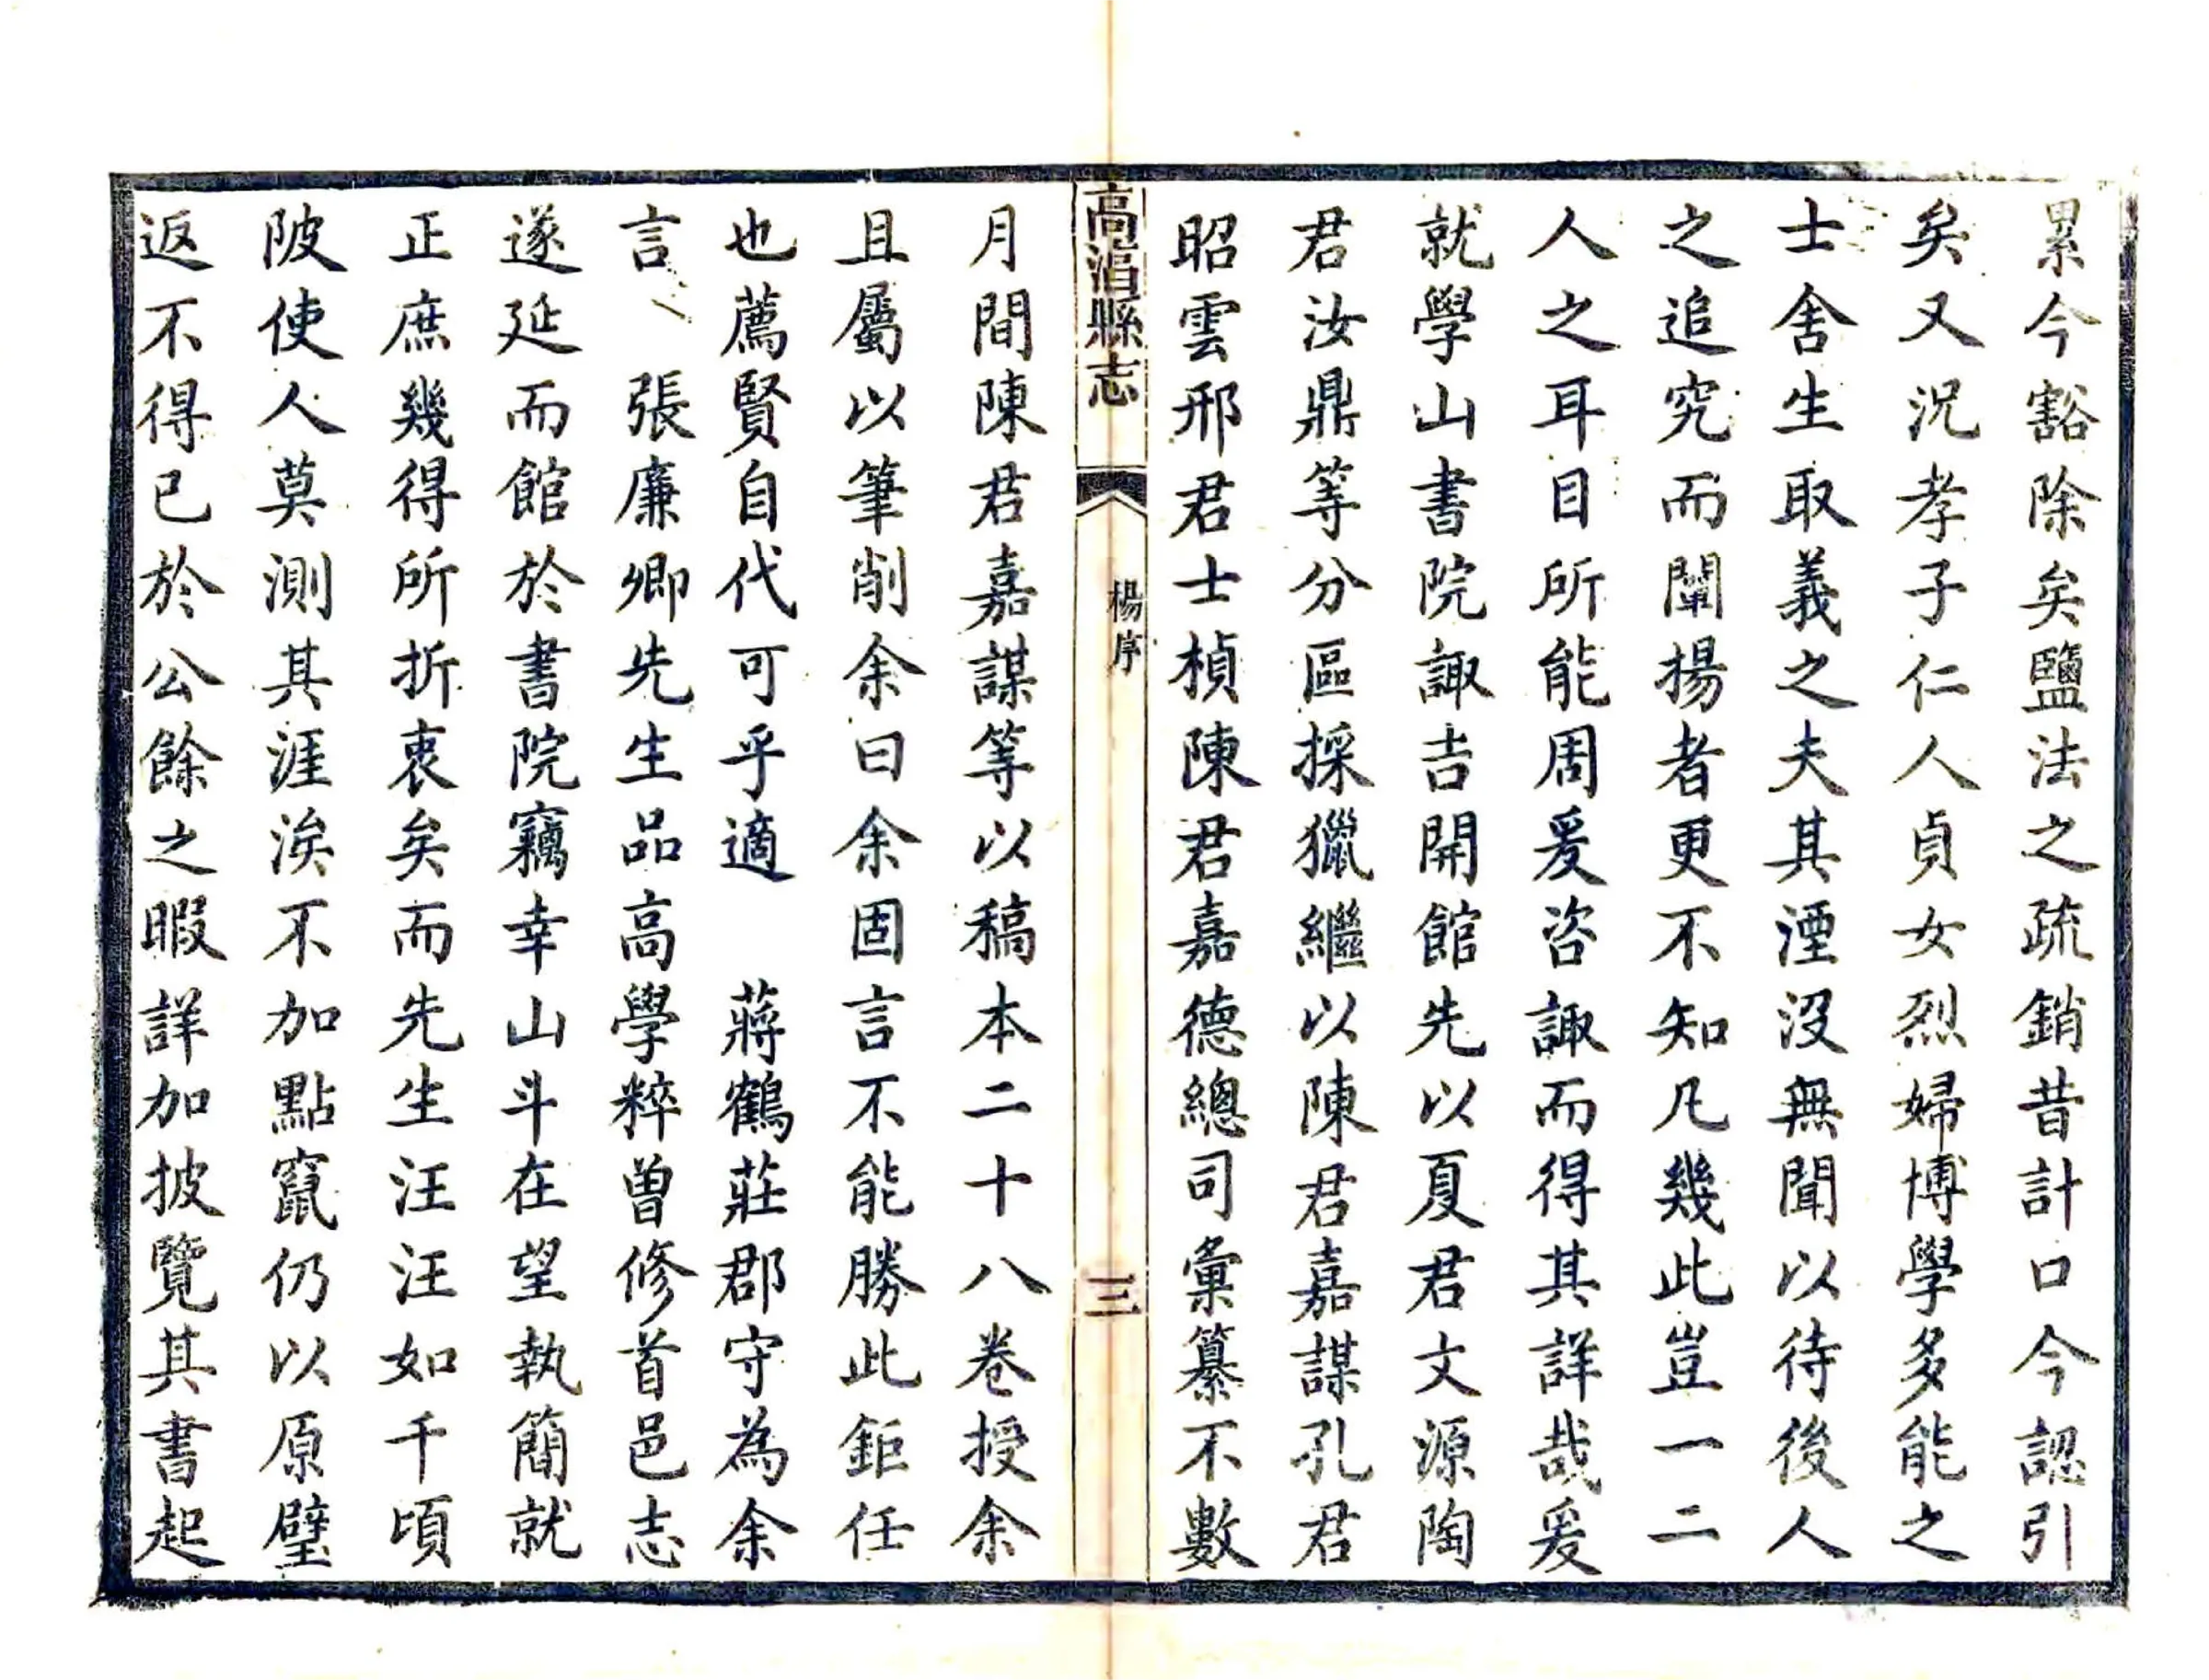 累今豁除矣鹽法之疏銷昔計口今認引
矣又況孝子仁人貞女烈婦博學多能之
士舍生取義之夫其湮沒無聞以待後人
之追究而闡揚者更不知凡幾此豈一二
人之耳目所能周爰咨諏而得其詳哉爰
就學山書院諏吉開館先以夏君文源陶
君汝鼎等分區採獵繼以陳君嘉謀孔君
昭雲邢君士楨陳君嘉德總司彙纂不數
高淳縣志
楊序
三
月間陳君嘉謀等以稿本二十八卷授余
且屬以筆削余曰余固言不能勝此鉅任
也薦賢自代可乎適 蔣鶴莊郡守為余
言 張廉卿先生品高學粹曾修首邑志
遂延而館於書院竊幸山斗在望執簡就
正庶幾得所折衷矣而先生汪汪如千頃
陂使人莫測其涯涘不加點竄仍以原璧
返不得已於公餘之暇詳加披覽其書起